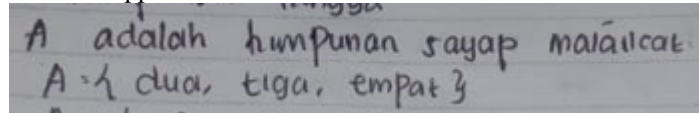 A adalah himpunan sayap malaikat.
A = { dua, tiga, empat }